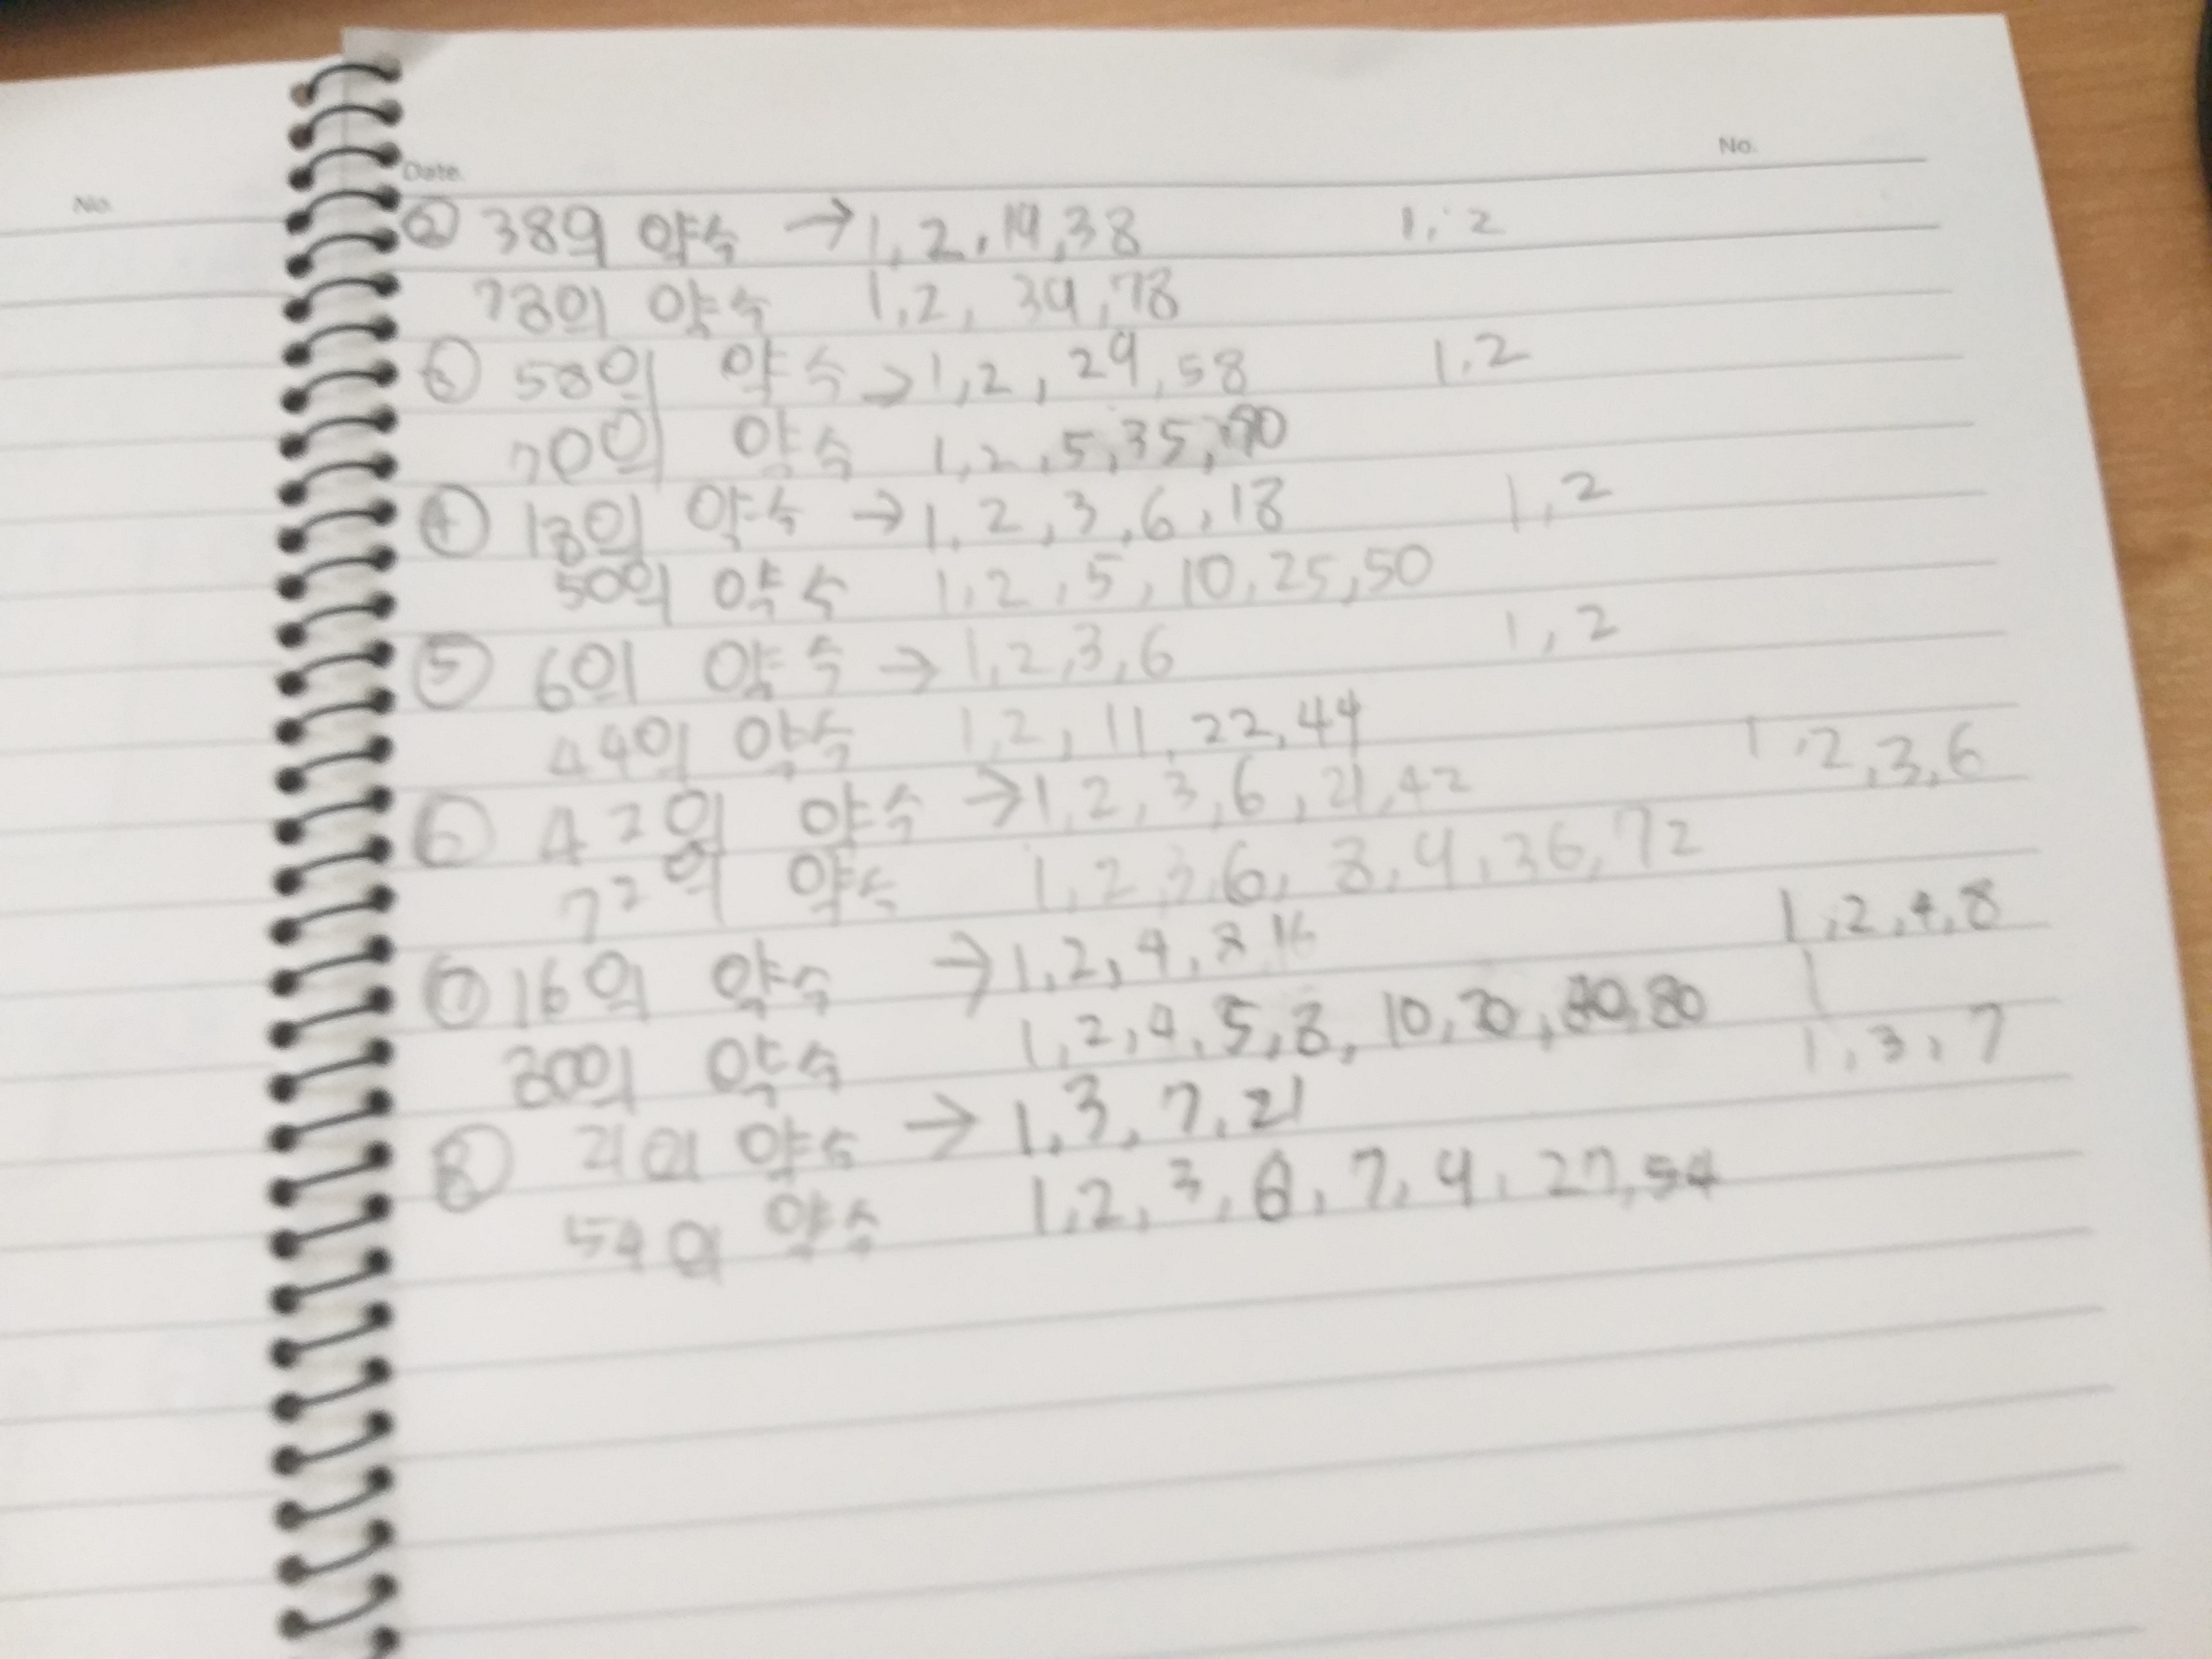 No.
Date.
No.
② 38의 약수 → 1, 2, 19, 38 1, 2
78의 약수 1, 2, 39, 78
③ 58의 약수 → 1, 2, 29, 58 1, 2
70의 약수 1, 2, 5, 35, 70
④ 18의 약수 → 1, 2, 3, 6, 18 1, 2
50의 약수 1, 2, 5, 10, 25, 50
⑤ 6의 약수 → 1, 2, 3, 6 1, 2
44의 약수 1, 2, 11, 22, 44
⑥ 42의 약수 → 1, 2, 3, 6, 21, 42 1, 2, 3, 6
72의 약수 1, 2, 3, 6, 8, 9, 36, 72
⑦ 16의 약수 → 1, 2, 4, 8 16 1, 2, 4, 8
80의 약수 1, 2, 4, 5, 8, 10, 20, 40, 80 1
⑧ 21의 약수 → 1, 3, 7, 21 1, 3, 7
54의 약수 1, 2, 3, 6, 7, 9, 27, 54